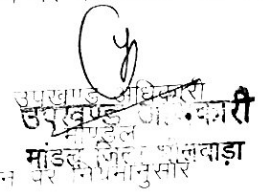 उपखण्ड अधिकारी
उपखण्ड अधिकारी
माण्डल
मांडल जिला भीलवाड़ा
न पर नियमानुसार